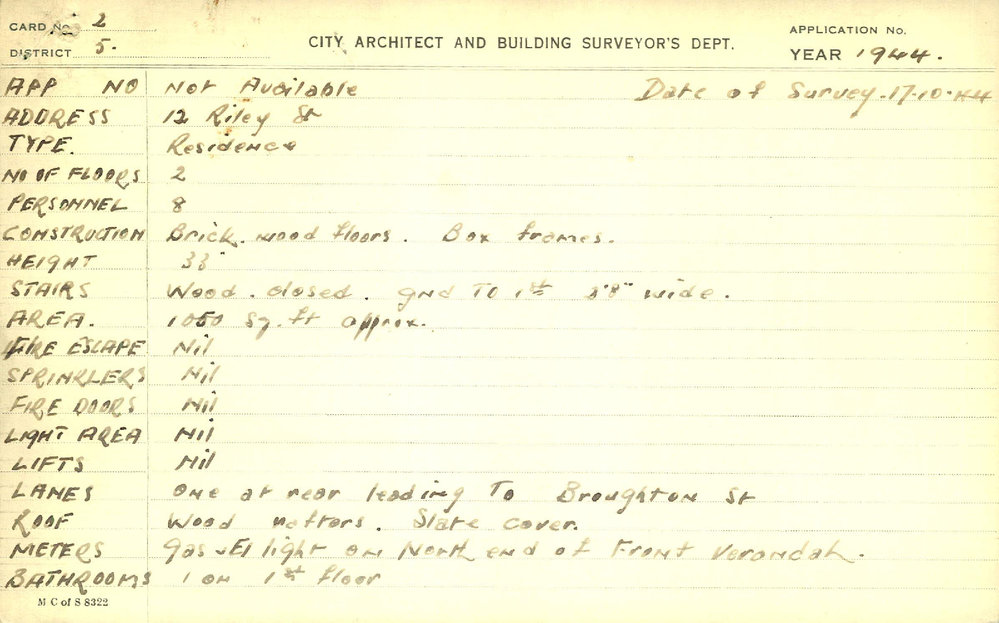 CARD No. 2
DISTRICT 5.
CITY ARCHITECT AND BUILDING SURVEYOR'S DEPT.
APPLICATION No.
YEAR 1944.
APP NO Not Available Date of Survey. 17-10-44
ADDRESS 12 Riley St
TYPE. Residence
NO OF FLOORS 2
PERSONNEL 8
CONSTRUCTION Brick. wood floors. Box frames.
HEIGHT 33'
STAIRS Wood. closed. gnd To 1st wide.
AREA. 1050 Sq. ft approx.
FIRE ESCAPE Nil
SPRINKLERS Nil
FIRE DOORS Nil
LIGHT AREA Nil
LIFTS Nil
LANES One at rear leading To Broughton St
ROOF Wood Slate cover.
METERS Gas El light on North end of Front Verandah.
BATHROOMS 1 on 1st floor
M C of S 8322